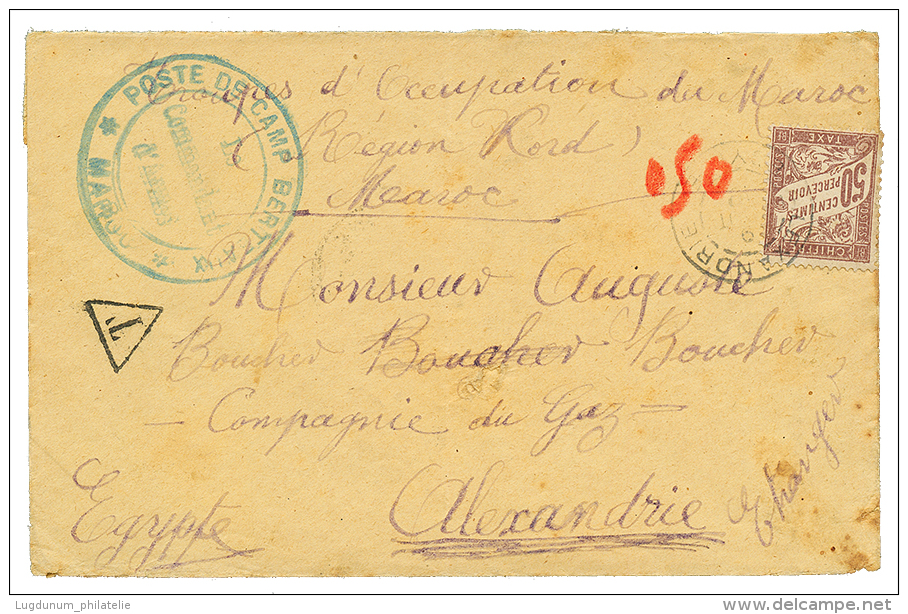 Troupes d'Occupation du Maroc
(Région Nord)
Maroc
050
* POSTE DE CAMP BERTEAUX * MAROC
Le
Commandant
d'Armes
50
CENTIMES
À
PERCEVOIR
CHIFFRE
TAXE
POSTES
ALEXANDRIE
T
Monsieur Auguste
Boucher Boucher Boucher
— Compagnie du Gaz —
Egypte Alexandrie
Etranger
Lugdunum_philatelie